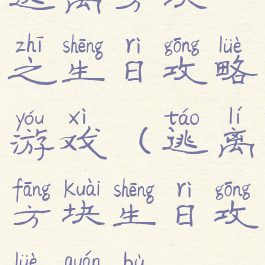 逃离方块
zhī shēng rì gōng lüè
之生日攻略
yóu xì táo lí
游戏(逃离
fāng kuài shēng rì gōng
方块生日攻
lüè quán bù